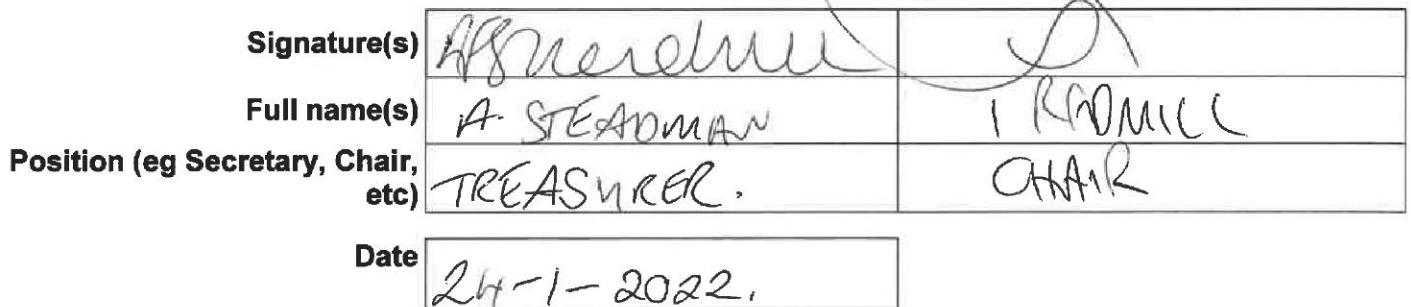 Signature(s)
Full name(s) A. STEADMAN I RADMILL
Position (eg Secretary, Chair,
etc) TREASURER. CHAIR
Date 24-1-2022.